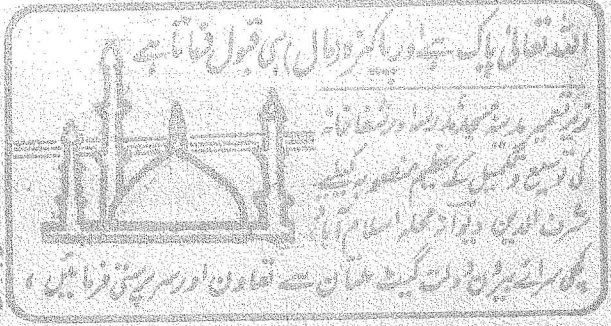 اللہ تعالیٰ پاک ہے اور پاکیزہ مال ہی قبول فرماتا ہے
زیر تعمیر مدینہ مسجد مدرسہ اور شفاخانہ
کی توسیع و تکمیل کے عظیم منصوبہ کیلئے
شرف الدین دیوان محلہ اسلام آباد
کچی سرائے بیرون دولت گیٹ ملتان سے تعاون اور سرپرستی فرمائیں ،